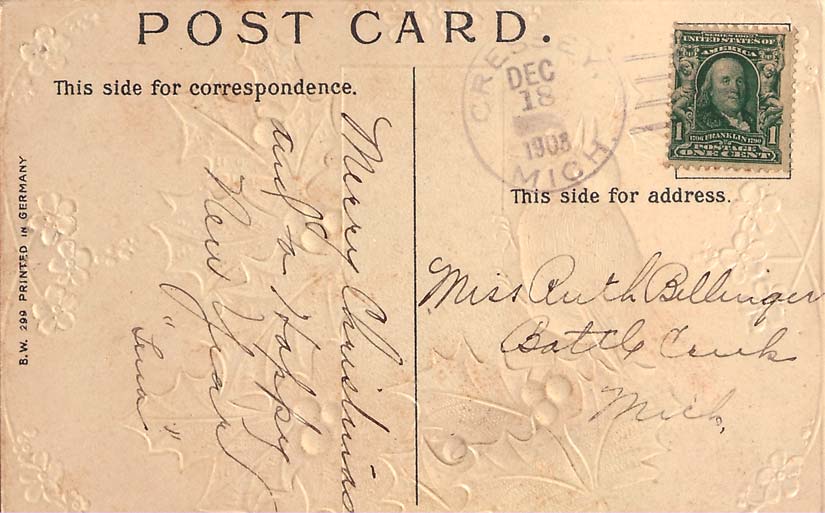 POST CARD.
This side for correspondence.
Merry Christmas
and a Happy
New Year
"Lena"
B.W. 299 PRINTED IN GERMANY
CRESSEY,
DEC
18
1908
MICH.
SERIES 1902
UNITED STATES OF
AMERICA
1 1
1706 FRANKLIN 1790
POSTAGE
ONE CENT
This side for address.
Miss Ruth Bellinger
Battle Creek
Mich.